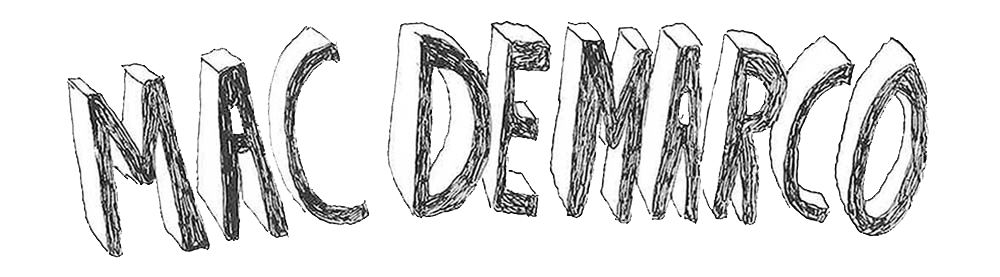 MAC DEMARCO